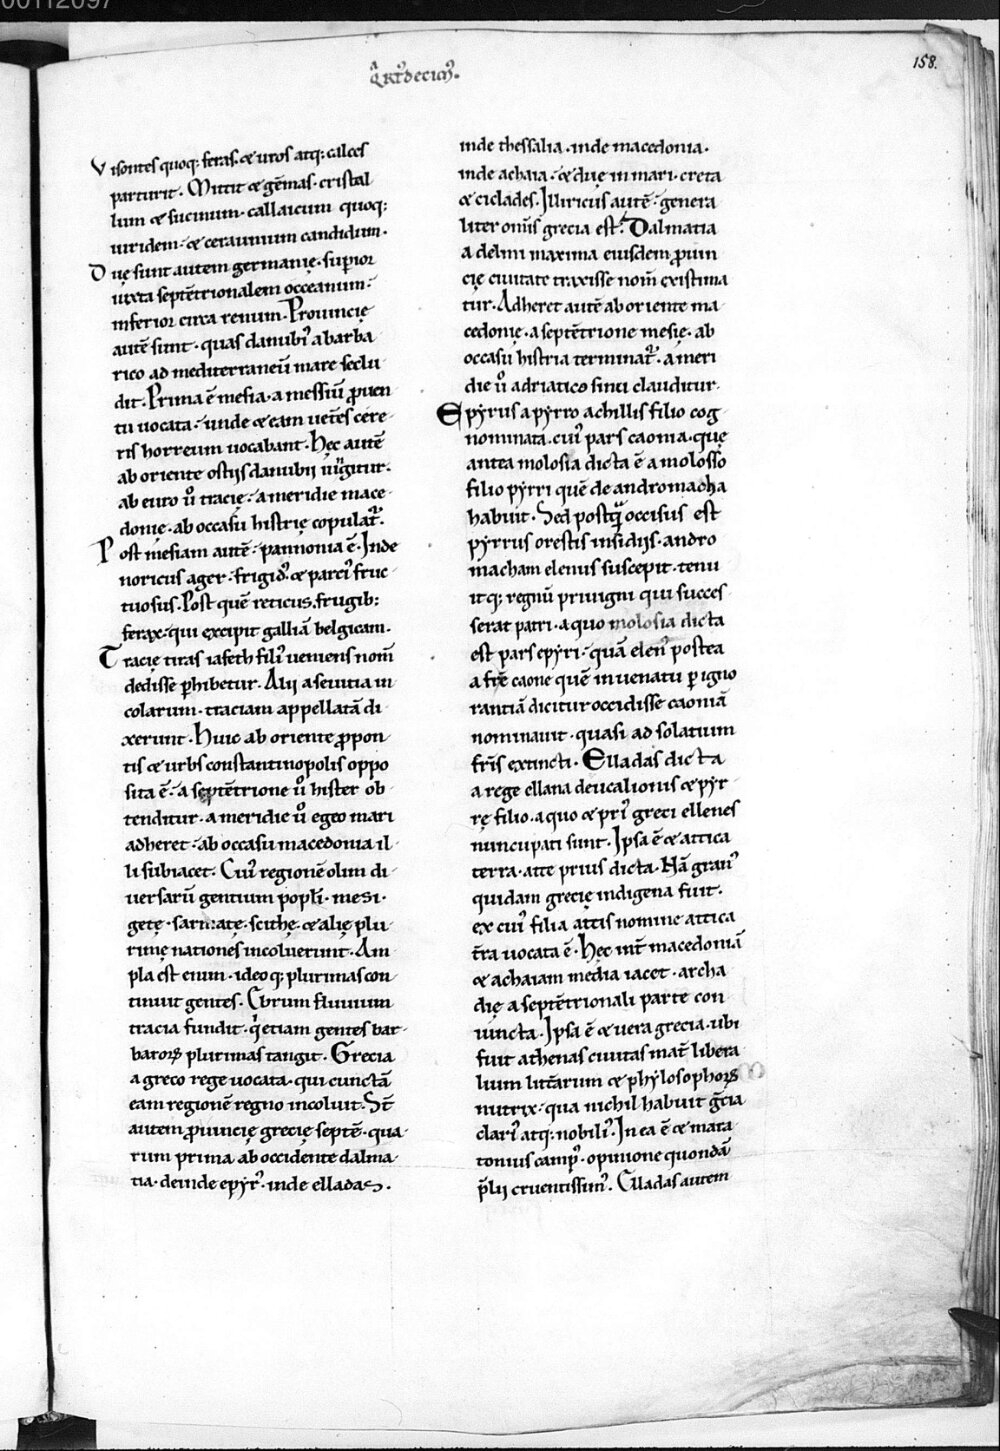 00112097
158.
q̇rt᷒decim᷒.
Visontes quoq; feras. & uros atq; alces
parturit. Mittit & gēmas. cristal
lum & sucinum. callaicum quoq;
uiridem. & ceraunium candidum.
Duę sunt autem germanię. superior
iuxta septētrionalem occeanum.
inferior circa renum. Prouincię
autē sunt. quas danubi᷒ a barba
rico ad mediterraneū mare seclu
dit. Prima ē mesia. a messiū prouen
tu uocata. unde & eam uet̄es cere
ris horreum uocabant. Hęc autē
ab oriente ostiis danubii iu̇gitur.
ab euro ů tracię. a meridie mace
donię. ab occasu histrię copulat᷒.
Post mesiam autē. pannonia ē. Inde
noricus ager. frigid᷒. & parci᷒ fruc
tuosus. Post quē reticus. frugib;
ferax. qui excipit galliā belgicam.
Tracię tiras iafeth fili᷒ ueniens nom̄
dedisse phibetur. Alii a seuitia in
colarum. traciam appellatā di
xerunt. Huic ab oriente ppon
tis & urbs constantinopolis oppo
sita ē. a septētrione ů hister ob
tenditur. a meridie ů egeo mari
adheret. ab occasu macedonia il
li subiacet. Cui᷒ regionē olim di
uersarū gentium popl̄i. mesi
getę. sarmatę. scithę. & alię plu
rimę nationes incoluerunt. Am
pla est enim. ideoq; plurimas con
tinuit gentes. Ebrum fluuium
tracia fundit. q̇ etiam gentes bar
baroꝝ plurimas tangit. Grecia
a greco rege uocata. qui cunctā
eam regionē regno incoluit. St̄
autem prouincię grecię septē. qua
rum prima ab occidente dalma
tia. deinde epyr᷒. inde elladas.
inde thessalia. inde macedonia.
inde achaia. & duę in mari. creta
& ciclades. Illiricus autē. genera
liter omīs grecia est. Dalmatia
a delmi maxima eiusdem prouin
cię ciuitate traxisse nom̄ existima
tur. Adheret autē ab oriente ma
cedonię. a septētrione mesię. ab
occasu histria terminat᷒. a meri
die ů adriatico sinu clauditur.
Epyrus a pyrro achillis filio cog
nominata. cui᷒ pars caonia. quę
antea molosia dicta ē a molosso
filio pyrri quē de andromacha
habuit. Sed postq̄ occisus est
pyrrus orestis insidiis. andro
macham elenus suscepit. tenu
itq; regnū priuigni qui succes
serat patri. a quo molosia dicta
est pars epyri. quā elen᷒ postea
a fr̄e caone quē in uenatu p igno
rantiā dicitur occidisse caoniā
nominauit. quasi ad solatium
fr̄is extincti. Elladas dicta
a rege ellana deucalionis & pyr
rę filio. a quo & pri᷒ greci ellenes
nuncupati sunt. Ipsa ē & attica
terra. atte prius dicta. Nā gran᷒
quidam grecię indigena fuit.
ex cui᷒ filia attis nomine attica
t̄ra uocata ē. Hęc int̄ macedoniā
& achaiam media iacet. archa
dię a septētrionali parte con
iuncta. Ipsa ē & uera grecia. ubi
fuit athenas ciuitas mat̄ libera
lium litt̄arum & phylosophoꝝ
nutrix. qua nichil habuit ḡcia
clari᷒ atq; nobili᷒. In ea ē & mara
tonius camp᷒. opinione quondā
p̄lii cruentissim᷒. Elladas autem